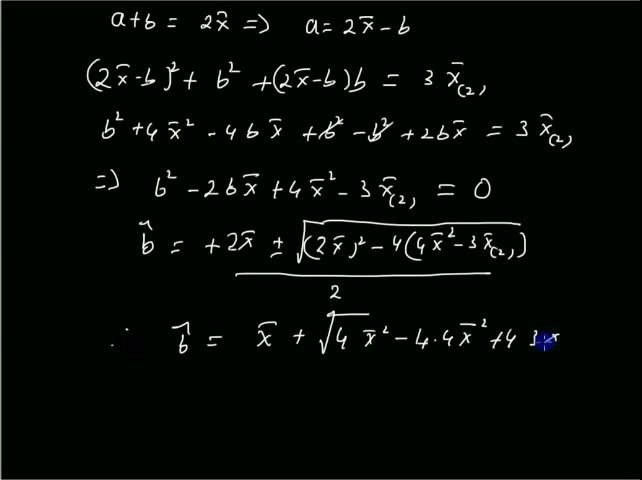 a+b = 2x̄ => a = 2x̄ - b
(2x̄-b)² + b² + (2x̄-b)b = 3 x̄₍₂₎
b² + 4x̄² - 4bx̄ + b² - b² + 2bx̄ = 3 x̄₍₂₎
=> b² - 2bx̄ + 4x̄² - 3x̄₍₂₎ = 0
b̂ = +2x̄ ± √((2x̄)² - 4(4x̄² - 3x̄₍₂₎)) / 2
∴ b̂ = x̄ + √4 x̄² - 4·4x̄² + 4 3x